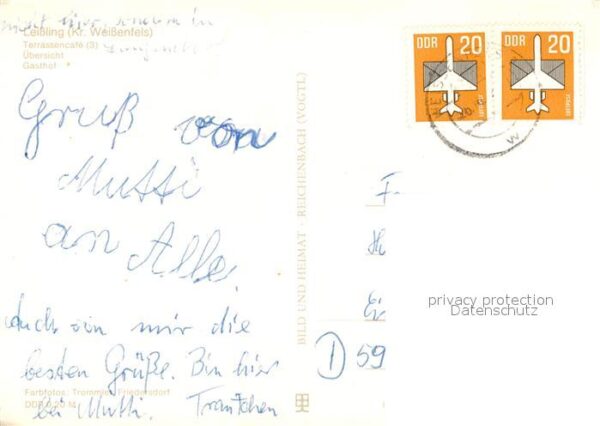 nicht hier, sondern in
Leißling (Kr. Weißenfels)
Terrassencafé (3)
Übersicht
Gasthof
Gruß von
Mutti
an Alle.
Auch von mir die
besten Grüße. Bin hier
bei Mutti. Trautchen
Farbfotos: Trommer, Friedersdorf
DDR 0,20 M
BILD UND HEIMAT · REICHENBACH (VOGTL)
DDR 20
LUFTPOST
DDR 20
LUFTPOST
F
privacy protection
Datenschutz
D 59